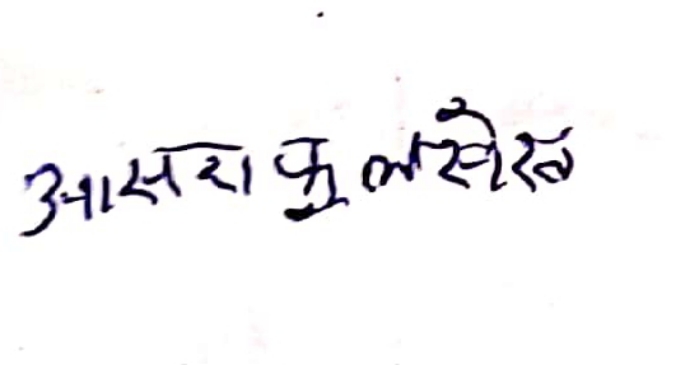 आसरा फुलसेरत